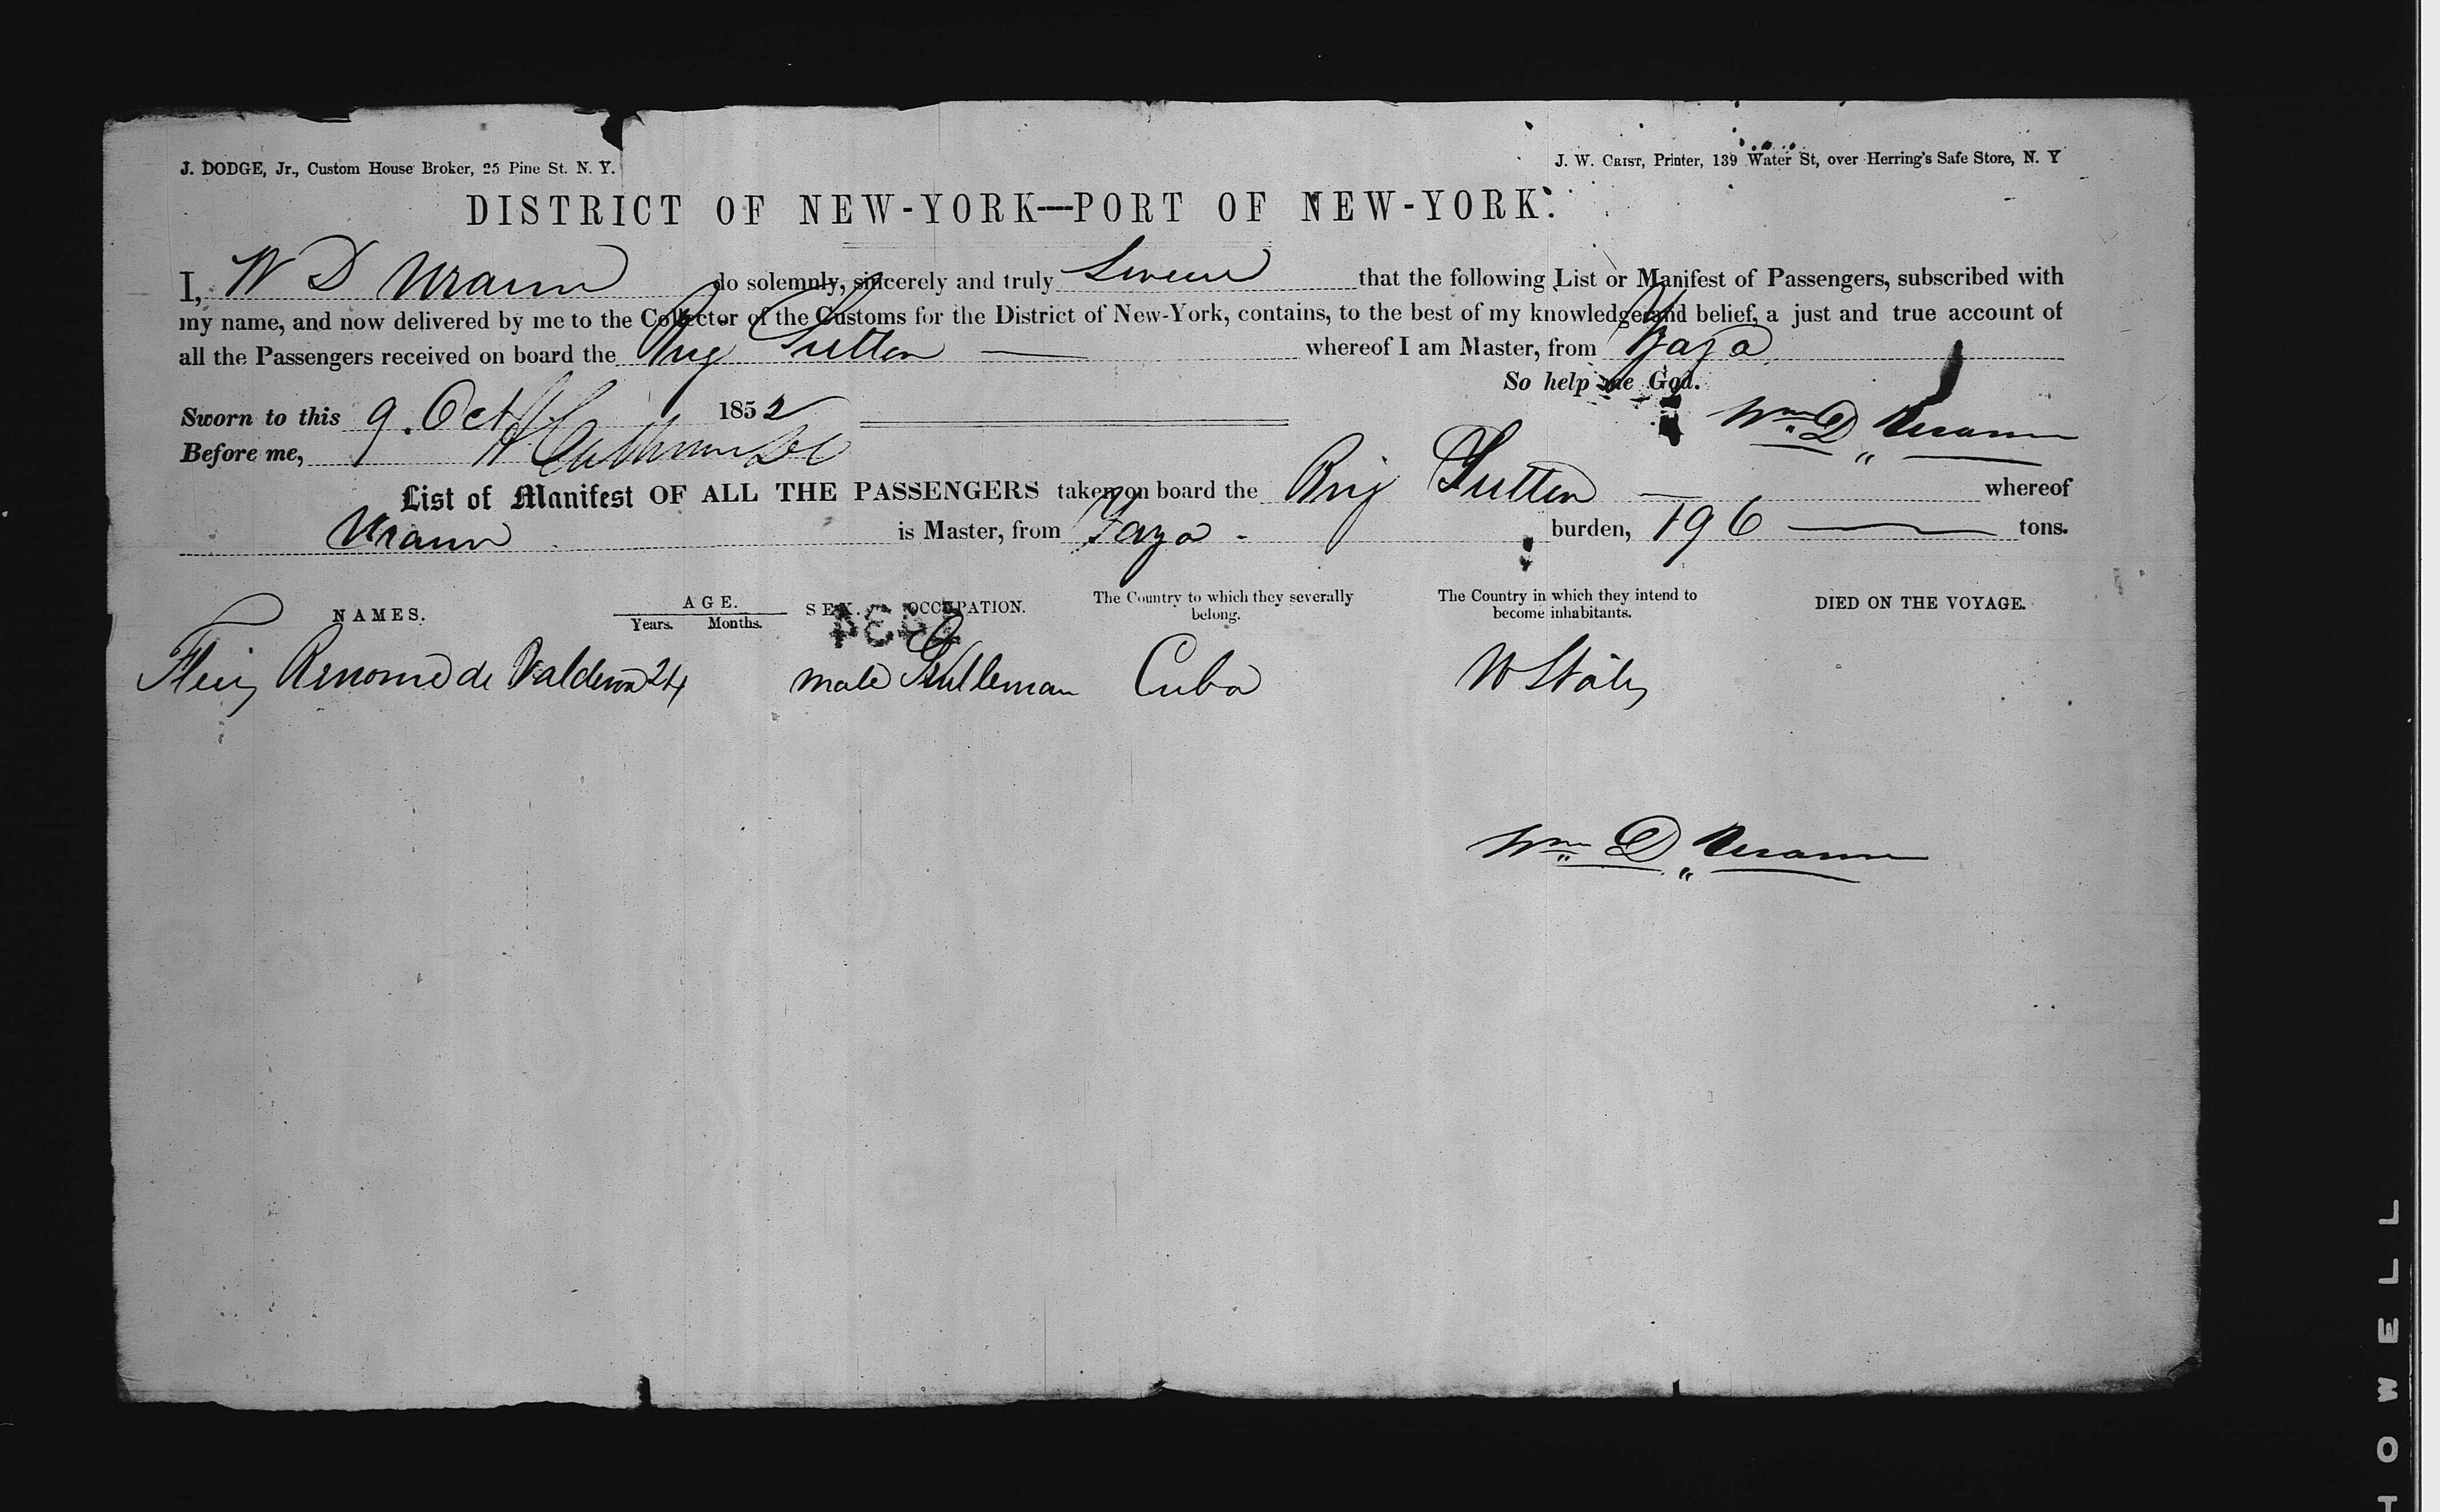 J. DODGE, Jr., Custom House Broker, 25 Pine St. N. Y.
J. W. CRIST, Printer, 139 Water St, over Herring's Safe Store, N. Y
DISTRICT OF NEW-YORK—PORT OF NEW-YORK.
I, W D Urann do solemnly, sincerely and truly Swear that the following List or Manifest of Passengers, subscribed with
my name, and now delivered by me to the Collector of the Customs for the District of New-York, contains, to the best of my knowledge and belief, a just and true account of
all the Passengers received on board the Brig Sutton whereof I am Master, from Zaza
So help me God.
Sworn to this 9. Oct 1852
Wm D Urann
Before me,
List of Manifest OF ALL THE PASSENGERS taken on board the Brig Sutton whereof
Urann is Master, from Zaza - burden, 196 tons.
NAMES. AGE. Years. Months. SEX. OCCUPATION. The Country to which they severally belong. The Country in which they intend to become inhabitants. DIED ON THE VOYAGE.
de 24 male Gentleman Cuba U States
Wm D Urann
HOWELL